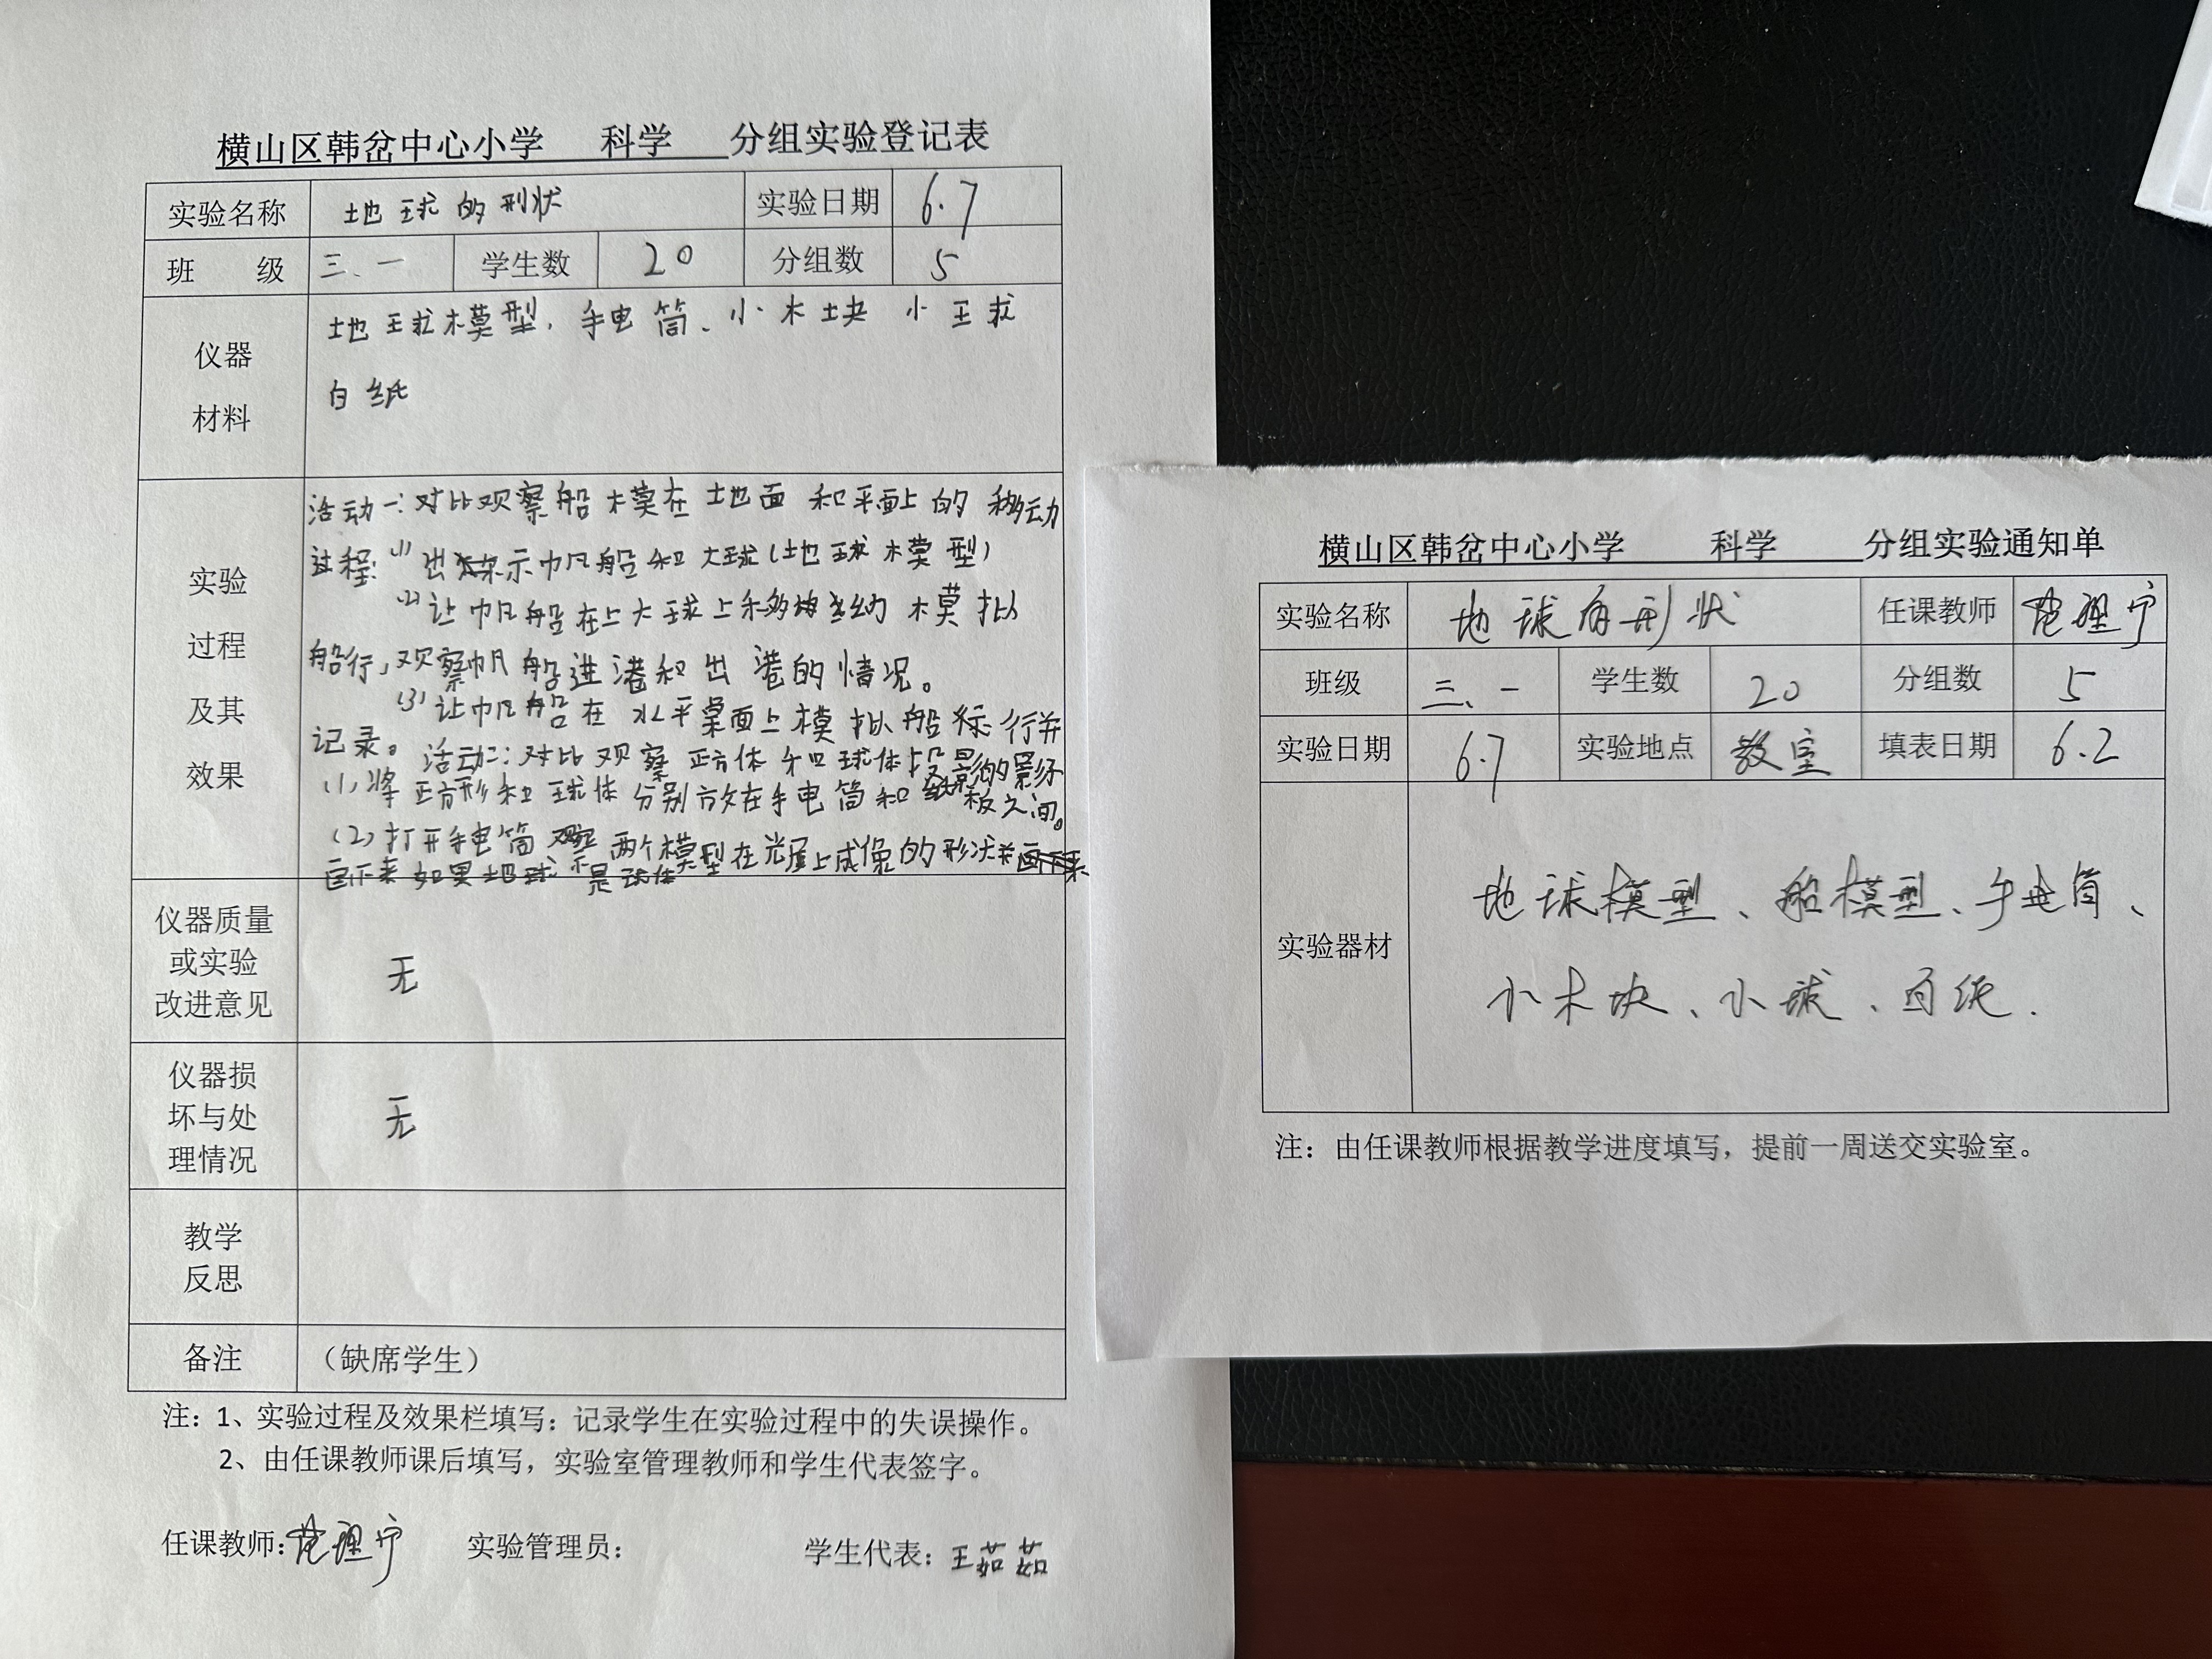 横山区韩岔中心小学 科学 分组实验登记表
实验名称 地球的形状 实验日期 6.7
班 级 三、一 学生数 20 分组数 5
仪器
材料
地球模型、手电筒、小木块 小球
白纸
实验
过程
及其
效果
活动一:对比观察船模在地面和平面上的移动
过程:(1)出示帆船和大球(地球模型)
(2)让帆船在大球上 模拟
船行,观察帆船进港和出港的情况。
(3)让帆船在水平桌面上模拟船 行并
记录。活动二:对比观察正方体和球体投影的影子
(1)将正方形和球体分别放在手电筒和纸板之间。
(2)打开手电筒观察两个模型在光屏上成像的形状并
画下来 如果地球不是球体
仪器质量
或实验
改进意见
无
仪器损
坏与处
理情况
无
教学
反思
备注 (缺席学生)
注:1、实验过程及效果栏填写:记录学生在实验过程中的失误操作。
2、由任课教师课后填写,实验室管理教师和学生代表签字。
任课教师: 实验管理员: 学生代表:王茹茹
横山区韩岔中心小学 科学 分组实验通知单
实验名称 地球的形状 任课教师
班级 三、一 学生数 20 分组数 5
实验日期 6.7 实验地点 教室 填表日期 6.2
实验器材
地球模型、船模型、手电筒、
小木块、小球、白纸.
注:由任课教师根据教学进度填写,提前一周送交实验室。